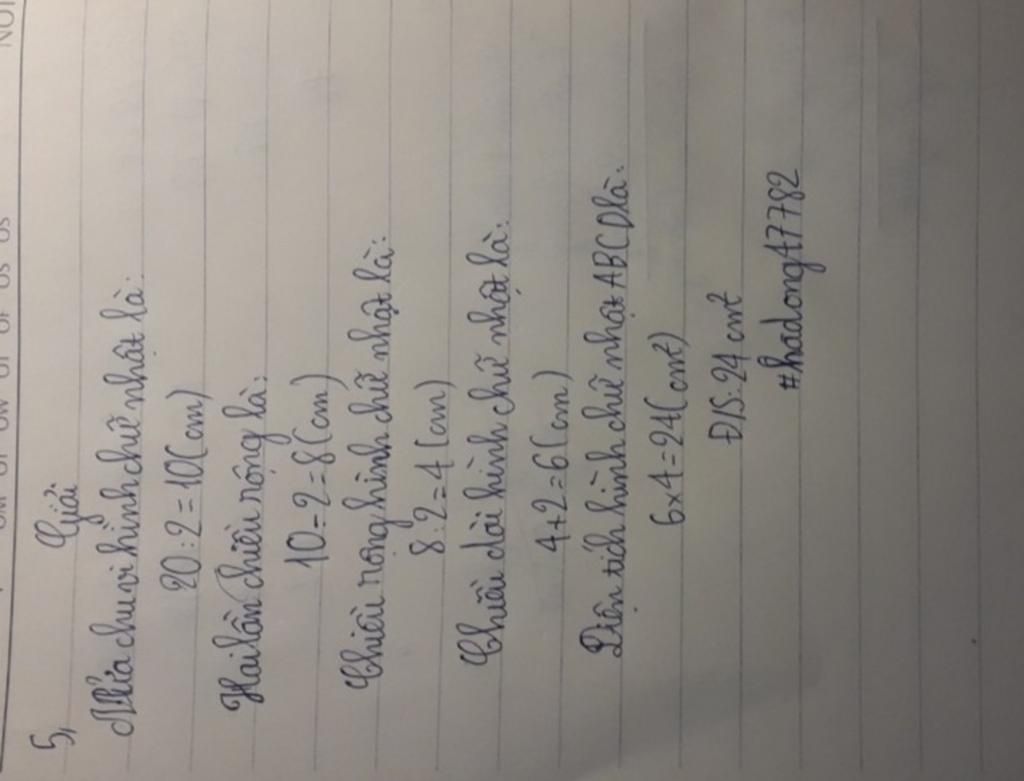 5,
Giải
Nửa chu vi hình chữ nhật là:
20:2=10(cm)
Hai lần chiều rộng là:
10-2=8(cm)
Chiều rộng hình chữ nhật là:
8:2=4(cm)
Chiều dài hình chữ nhật là:
4+2=6(cm)
Diện tích hình chữ nhật ABCD là:
6x4=24(cm²)
Đ/S: 24 cm²
#hadong17782